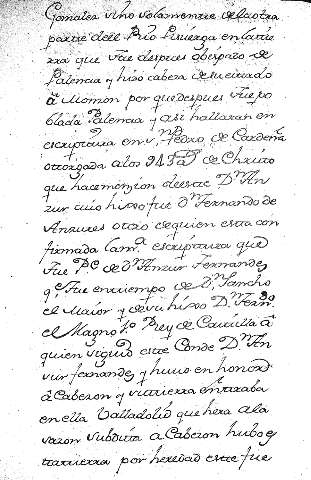 Gonsalez vino solamente dela otra
parte dell Rio Pisuerga en la tie
rra que fue despues obispado de
Palencia y hiso cabeza de su estado
â Monzon por que despues fue po
blada Palencia y asi hallaran en
escriptura en S.n Pedro de Cardeña
otorgada a los de Christo
que hace menzion deeste D.n An
zur cuio hixo fue D.n Fernando de
Ansures otro de quien esta con
firmada la m.a escriptura que
fue P.e de D.n Anzur Fernandez
q.e fue en tiempo de D.n Sancho
el Maior y de su hixo D.n Fern.do
el Magno 1.o Rey de Castilla â
quien siguio este Conde D.n An
sur fernandez y huvo en honor
â Cabezon y su tierra entraba
en ella Valladolid que hera a la
sazon subdita a Cabezon hubo es
ta tierra por heredad este fue